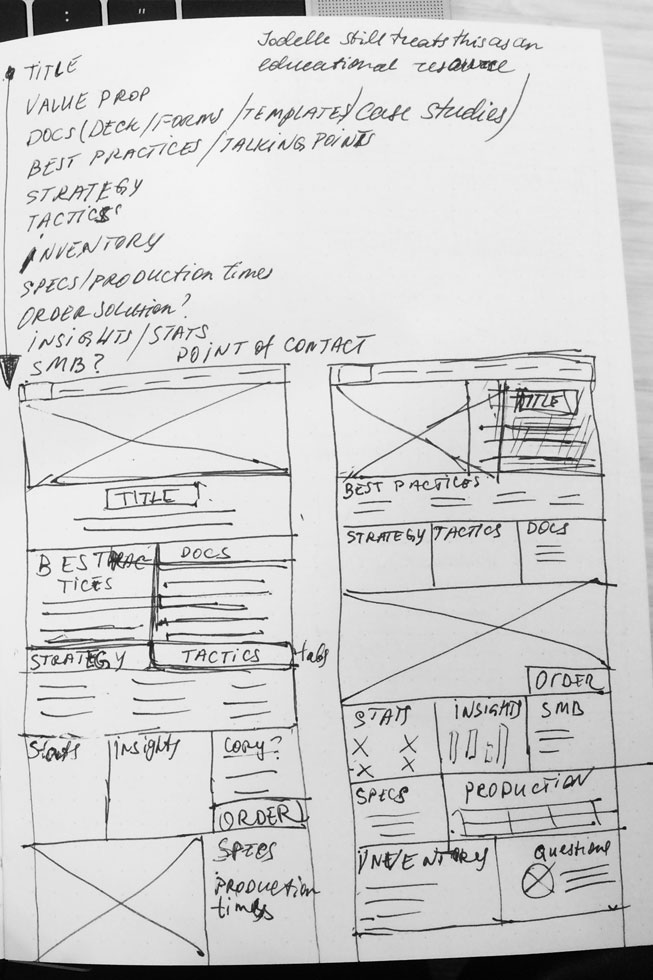 Jodelle still treats this as an
educational resource
TITLE
VALUE PROP
DOCS (DECK/FORMS/TEMPLATES/Case Studies)
BEST PRACTICES/TALKING POINTS
STRATEGY
TACTICS
INVENTORY
SPECS/PRODUCTION times
ORDER SOLUTION?
INSIGHTS/STATS
SMB?
POINT OF CONTACT
TITLE
BEST PRAC
TICES
DOCS
STRATEGY
TACTICS
tabs
Stats
insights
COPY?
ORDER
SPECS
PRODUCTION
times
TITLE
BEST PACTICES
STRATEGY
TACTICS
DOCS
ORDER
STATS
INSIGHTS
SMB
SPECS
PRODUCTION
INVENTORY
Questions